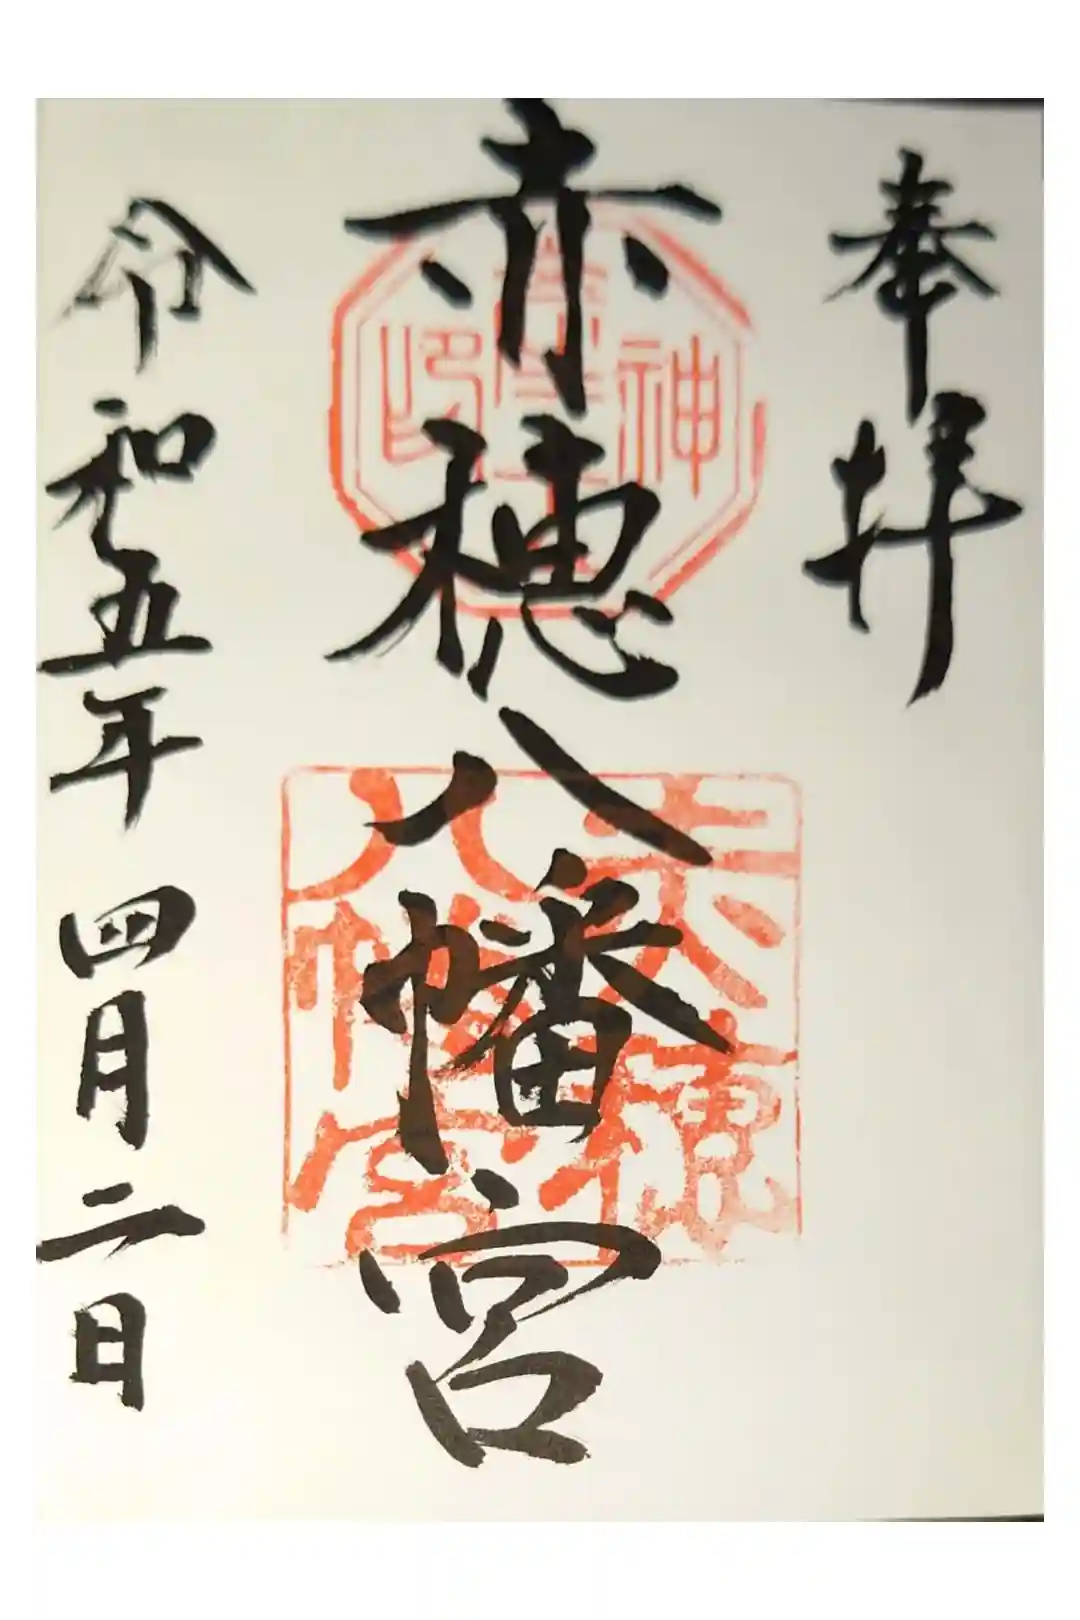 奉拝
赤穂八幡宮
令和五年四月二日
赤穂
八幡宮